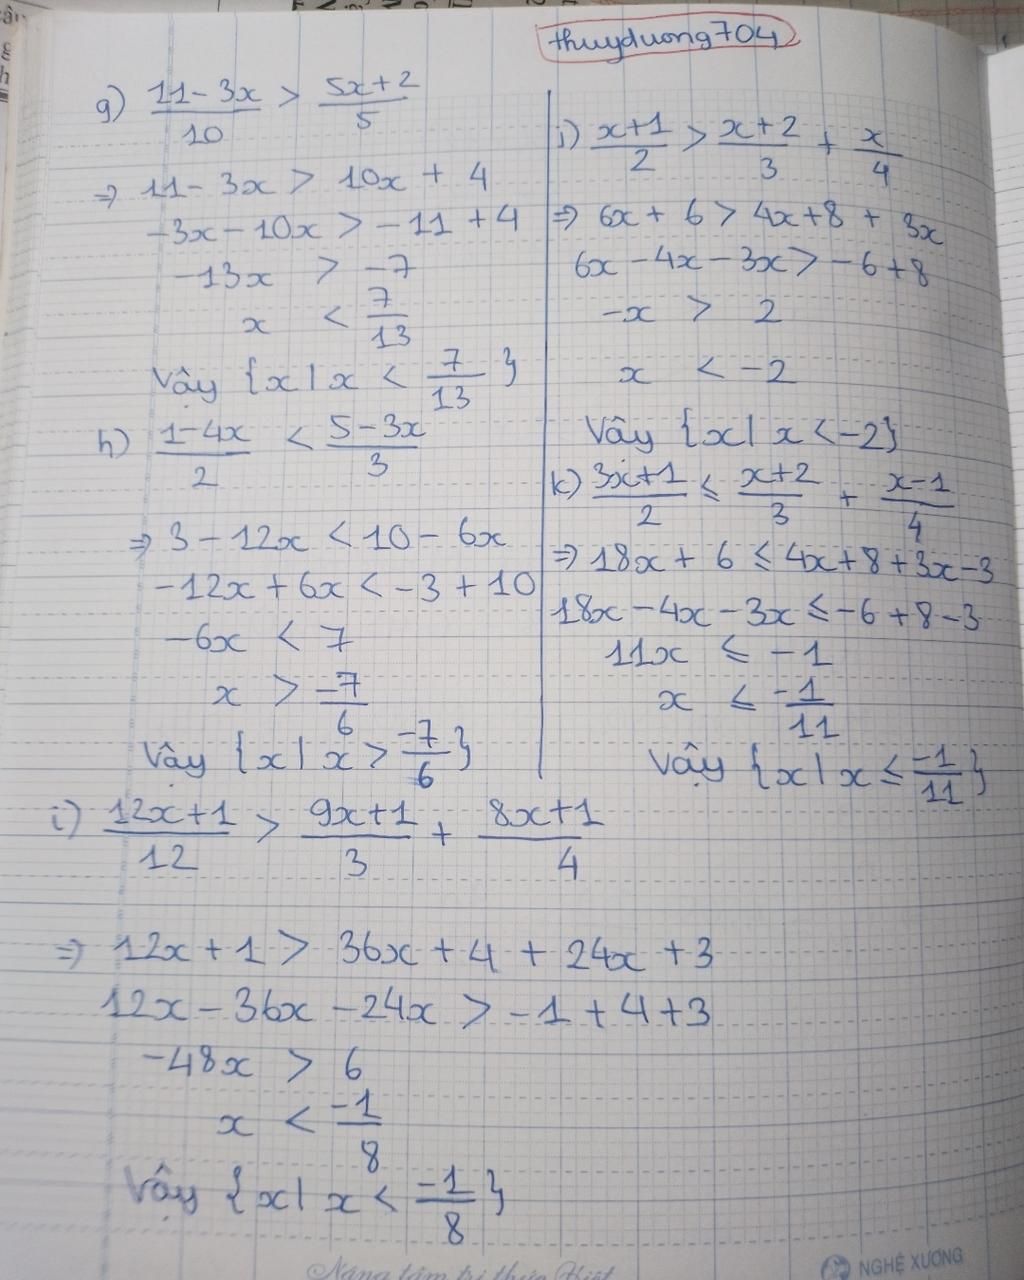 thuyduong704
g) (11-3x)/10 > (5x+2)/5
⇒ 11-3x > 10x + 4
-3x-10x > -11 +4
-13x > -7
x < 7/13
Vây {x | x < 7/13}
h) (1-4x)/2 < (5-3x)/3
⇒ 3-12x < 10-6x
-12x+6x < -3+10
-6x < 7
x > -7/6
Vậy {x | x > -7/6}
j) (x+1)/2 > (x+2)/3 + x/4
⇒ 6x + 6 > 4x+8 + 3x
6x -4x - 3x > -6+8
-x > 2
x < -2
Vây {x | x < -2}
k) (3x+1)/2 ≤ (x+2)/3 + (x-1)/4
⇒ 18x + 6 ≤ 4x+8+3x-3
18x -4x -3x ≤ -6+8-3
11x ≤ -1
x ≤ -1/11
Vậy {x | x ≤ -1/11}
i) (12x+1)/12 > (9x+1)/3 + (8x+1)/4
⇒ 12x+1 > 36x +4 + 24x +3
12x - 36x -24x > -1 +4+3
-48x > 6
x < -1/8
Vậy {x | x < -1/8}
NGHỆ XƯƠNG